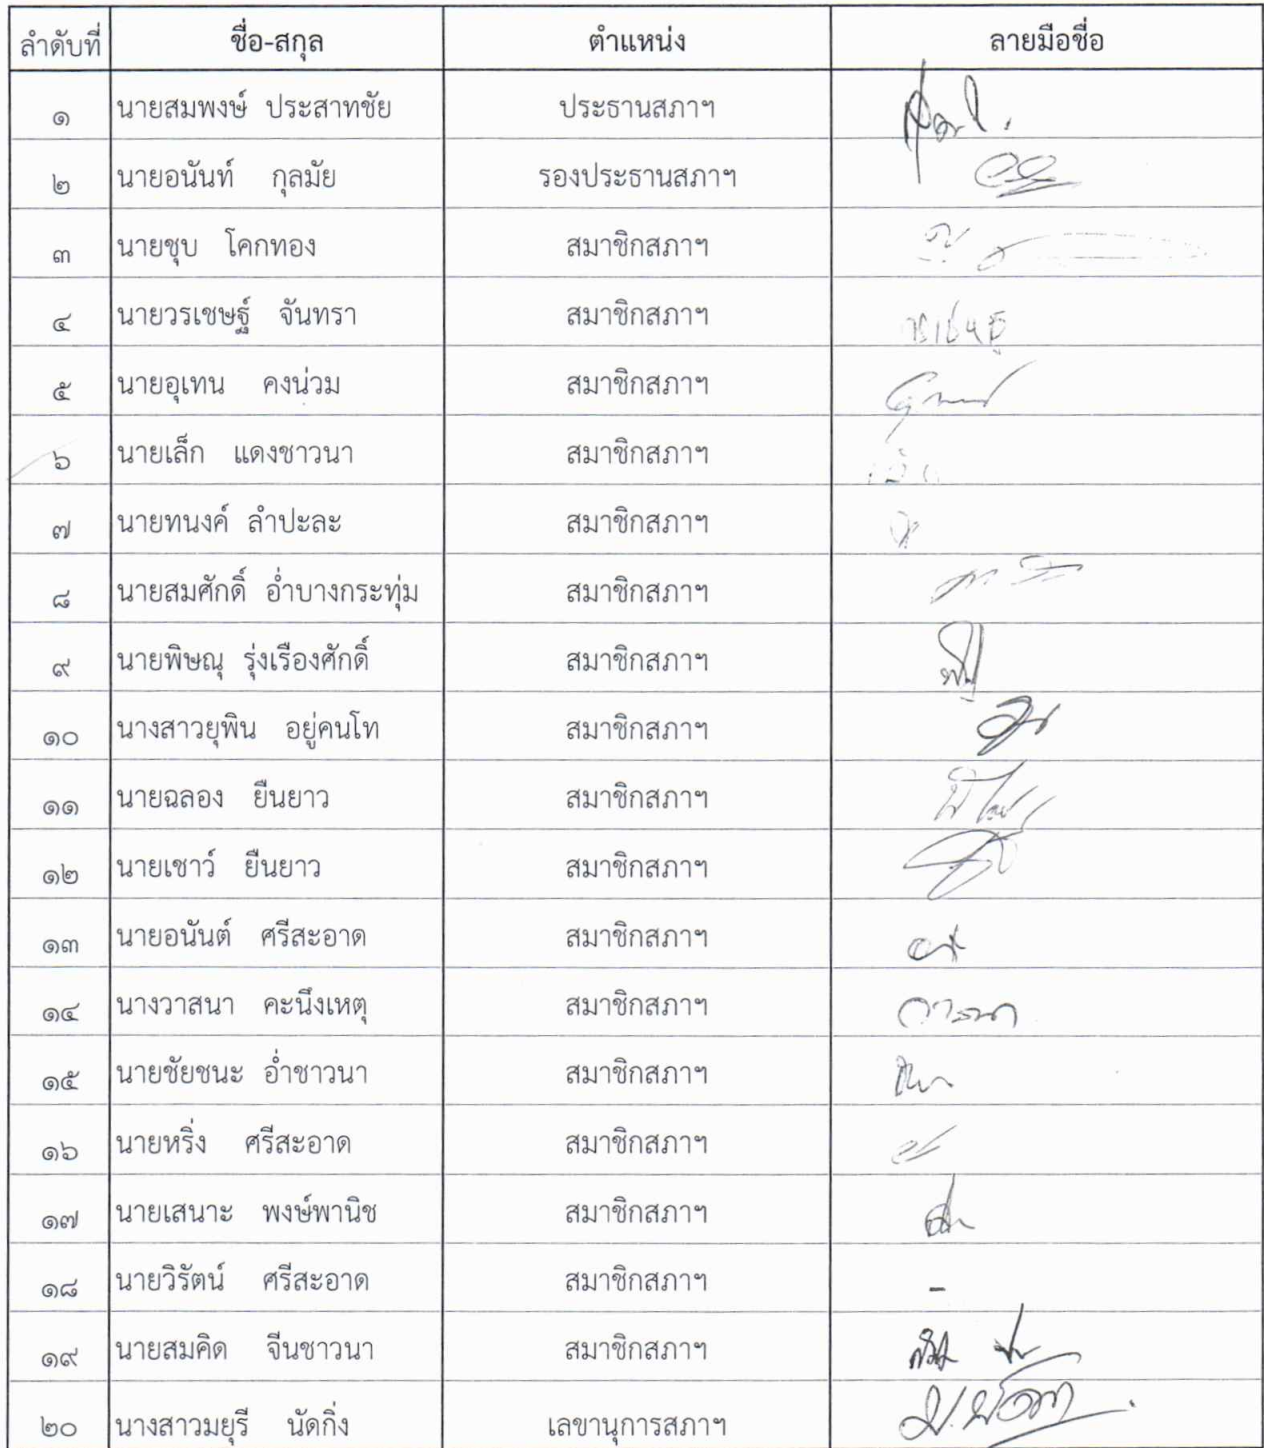 ลำดับที่ ชื่อ-สกุล ตำแหน่ง ลายมือชื่อ
๑ นายสมพงษ์ ประสาทชัย ประธานสภาฯ
๒ นายอนันท์ กุลมัย รองประธานสภาฯ
๓ นายชุบ โคกทอง สมาชิกสภาฯ
๔ นายวรเชษฐ์ จันทรา สมาชิกสภาฯ วรเชษฐ์
๕ นายอุเทน คงน่วม สมาชิกสภาฯ
๖ นายเล็ก แดงชาวนา สมาชิกสภาฯ
๗ นายทนงค์ ลำปะละ สมาชิกสภาฯ
๘ นายสมศักดิ์ อ่ำบางกระทุ่ม สมาชิกสภาฯ
๙ นายพิษณุ รุ่งเรืองศักดิ์ สมาชิกสภาฯ
๑๐ นางสาวยุพิน อยู่คนโท สมาชิกสภาฯ
๑๑ นายฉลอง ยืนยาว สมาชิกสภาฯ
๑๒ นายเชาว์ ยืนยาว สมาชิกสภาฯ
๑๓ นายอนันต์ ศรีสะอาด สมาชิกสภาฯ
๑๔ นางวาสนา คะนึงเหตุ สมาชิกสภาฯ วาสนา
๑๕ นายชัยชนะ อ่ำชาวนา สมาชิกสภาฯ
๑๖ นายหริ่ง ศรีสะอาด สมาชิกสภาฯ
๑๗ นายเสนาะ พงษ์พานิช สมาชิกสภาฯ
๑๘ นายวิรัตน์ ศรีสะอาด สมาชิกสภาฯ -
๑๙ นายสมคิด จีนชาวนา สมาชิกสภาฯ
๒๐ นางสาวมยุรี นัดกิ่ง เลขานุการสภาฯ